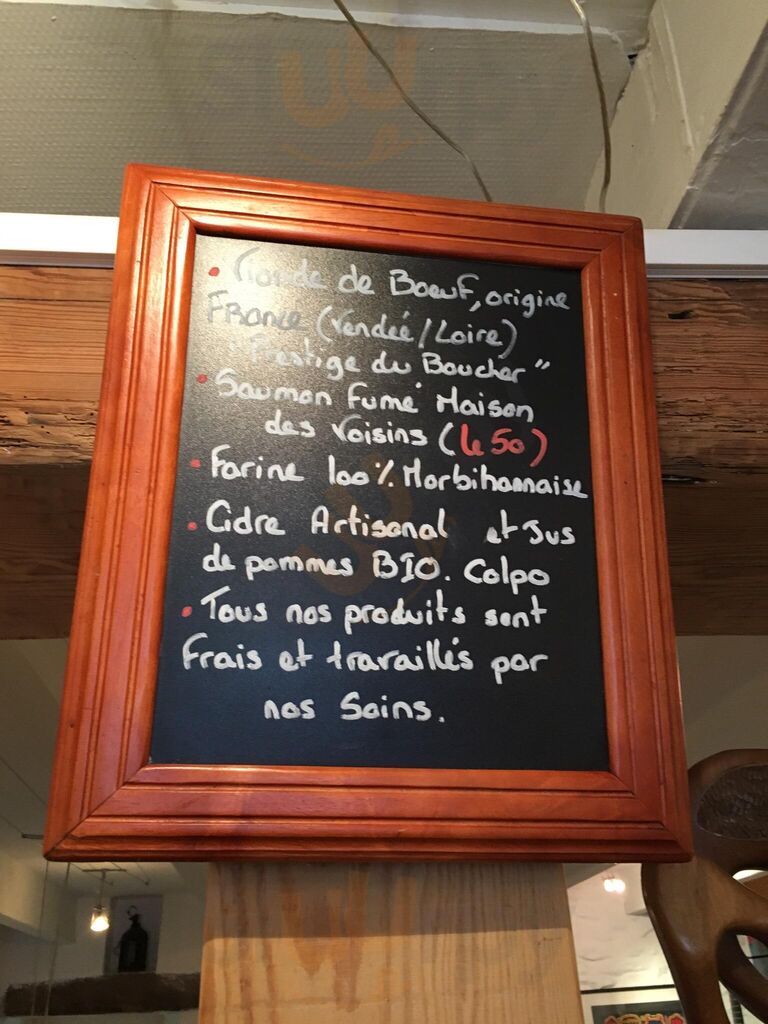 • Viande de Boeuf, origine
France (Vendée/Loire)
"Prestige du Boucher"
• Saumon Fumé Maison
des Voisins (le 50)
• Farine 100% Morbihannaise
• Cidre Artisanal et Jus
de pommes BIO. Colpo
• Tous nos produits sont
Frais et travaillés par
nos Soins.